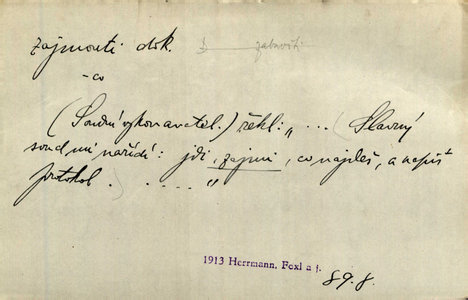 zajmouti dok. zabaviti
-co
(Soudní vykonavatel.) řekl: „ ... (Slavný
soud mi nařídí: jdi, zajmi, co najdeš, a napiš
protokol.) ..... "
1913 Herrmann, Foxl a j.
89.8.